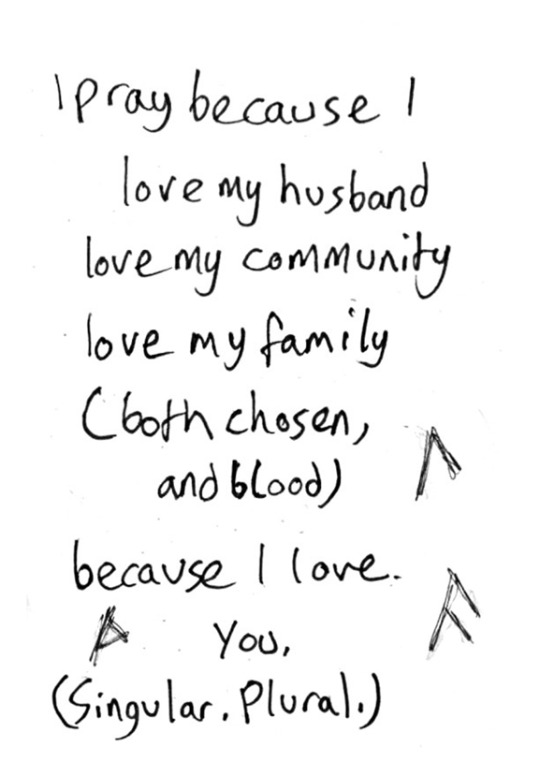 I pray because I
love my husband
love my community
love my family
(both chosen,
and blood)
because I love.
You.
(Singular. Plural.)